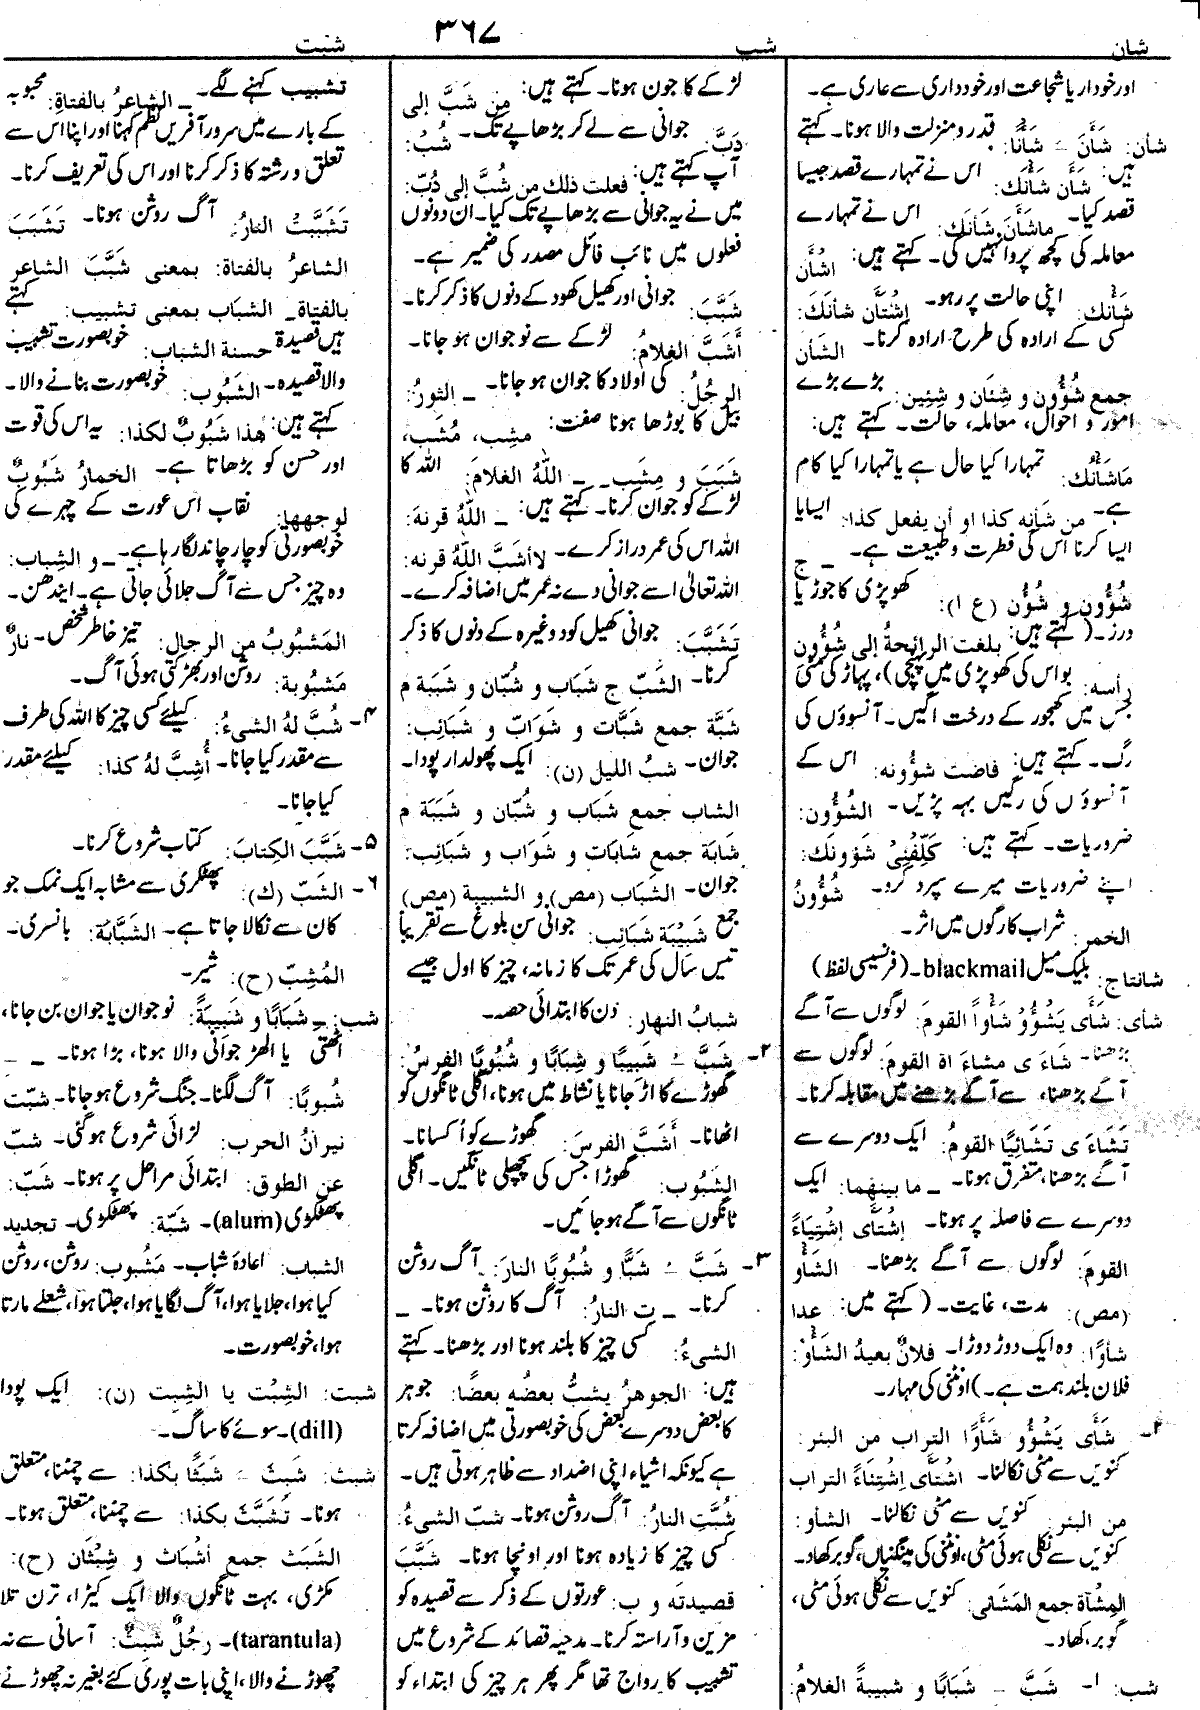 شان
شب
۳۶۷
شبت
اور خودار یا شجاعت اور خودداری سے عاری ہے۔
شأن: شَأَنَ ـَ شَأْنًا: قدر و منزلت والا ہونا۔ کہتے
ہیں: شَأَنَ شَأْنَك: اس نے تمہارے قصد جیسا
قصد کیا۔ ماشَأَنَ شَأْنَك: اس نے تمہارے
معاملہ کی کچھ پروا نہیں کی۔ کہتے ہیں: اشْأَن
شَأْنَك: اپنی حالت پر رہو۔ اِشْتَأَن شأنَك:
کسی کے ارادہ کی طرح ارادہ کرنا۔ الشَأن
جمع شُؤُون و شِئَان و شِئِین: بڑے بڑے
امور و احوال، معاملہ، حالت۔ کہتے ہیں:
مَاشَأْنُك: تمہارا کیا حال ہے یا تمہارا کیا کام
ہے۔ من شَأنِه كذا او أن يفعل كذا: ایسا یا
ایسا کرنا اس کی فطرت و طبیعت ہے۔ ـ ج
شُؤُون و شؤُن (ع ا): کھوپڑی کا جوڑ یا
ورز۔ (کہتے ہیں: بلغت الرائحةُ إلى شُؤُون
رأسه: بو اس کی کھوپڑی میں پہنچی)، پہاڑ کی مٹی
جس میں کھجور کے درخت اگیں۔ آنسوؤں کی
رگ۔ کہتے ہیں: فاضت شؤونه: اس کے
آنسوؤں کی رگیں بہہ پڑیں۔ الشُؤُون:
ضروریات۔ کہتے ہیں: كَلِّفْنِیْ شؤونك:
اپنے ضروریات میرے سپرد کرو۔ شُؤُونُ
الخمر: شراب کا رگوں میں اثر۔
شانتاج: بلیک میل blackmail۔ (فرنسیسی لفظ)
شأی: شَأَى يَشْؤُو شَأْوًا القومَ: لوگوں سے آگے
بڑھنا۔ شاءَ ى مشاءَ اة القومَ: لوگوں سے
آگے بڑھنا، سے آگے بڑھنے میں مقابلہ کرنا۔
تَشَاءَ ى تَشَائِيًا القومُ: ایک دوسرے سے
آگے بڑھنا، متفرق ہونا۔ ـ ما بينهما: ایک
دوسرے سے فاصلہ پر ہونا۔ اِشْتَأَى اِشْتِيَاءً
القومَ: لوگوں سے آگے بڑھنا۔ الشَأو
(مص): مدت، غایت۔ (کہتے ہیں: عدا
شأوًا: وہ ایک دوڑ دوڑا۔ فلانٌ بعيدُ الشَأوِ:
فلان بلند ہمت ہے۔) اونٹنی کی مہار۔
۲۔ شَأَى يَشْؤُو شَأْوًا التراب من البئر:
کنویں سے مٹی نکالنا۔ اشْتَأَى اِشْتِئَاءً التراب
من البئر: کنویں سے مٹی نکالنا۔ الشأو:
کنویں سے نکلی ہوئی مٹی، اونٹنی کی مینگنیاں، گوبر کھاد۔
المِشْآة جمع المَشَائی: کنویں سے نکلی ہوئی مٹی،
گوبر، کھاد۔
شب: ۱۔ شَبَّ ـِ شَبَابًا و شَبِيبةً الغلامُ:
لڑکے کا جون ہونا۔ کہتے ہیں: مِن شَبَّ إلى
دَبَّ: جوانی سے لے کر بڑھاپے تک۔ شُبْ:
آپ کہتے ہیں: فعلت ذلك مِن شُبَّ إلى دُبَّ:
میں نے یہ جوانی سے بڑھاپے تک کیا۔ ان دونوں
فعلوں میں نائب فائل مصدر کی ضمیر ہے۔
شَبَّبَ: جوانی اور کھیل کھود کے دنوں کا ذکر کرنا۔
أَشَبَّ الغلامُ: لڑکے سے نوجوان ہو جانا۔
ـ الرجُلُ: کی اولاد کا جوان ہو جانا۔ ـ الثورُ:
بیل کا بوڑھا ہونا صفت: مشِب، مُشَب،
شَبَبَ و مِشَب۔ ـ اللّٰهُ الغلامَ: اللہ کا
لڑکے کو جوان کرنا۔ کہتے ہیں: ـ اللّٰهُ قرنهَ:
اللہ اس کی عمر دراز کرے۔ لاأشَبَّ اللّٰهُ قرنه:
اللہ تعالیٰ اسے جوانی دے نہ عمر میں اضافہ کرے۔
تَشَبَّبَ: جوانی کھیل کود وغیرہ کے دنوں کا ذکر
کرنا۔ الشبّ ج شَبَاب و شُبّان و شَبَبَة م
شَبَّة جمع شَبَّات و شَوَابّ و شَبَائب:
جوان۔ شبُ الليل (ن): ایک پھولدار پودا۔
الشاب جمع شَبَاب و شُبّان و شَبَبَة م
شَابَة جمع شابات و شوَاب و شبائب:
جوان۔ الشَباب (مص) و الشبيبة (مص)
جمع شَبِيْبَة شَبائب: جوانی سن بلوغ سے تقریباً
تیس سال کی عمر تک کا زمانہ، چیز کا اول جیسے
شبابُ النهار: دن کا ابتدائی حصہ۔
۲۔ شَبَّ ـُ شَبِيبًا و شِبَابًا و شُبُوبًا الفرسُ:
گھوڑے کا اڑ جانا یا نشاط میں ہونا، اگلی ٹانگوں کو
اٹھانا۔ أَشَبَّ الفرسَ: گھوڑے کو اُکسانا۔
الشَبُوب: گھوڑا جس کی پچھلی ٹانگیں۔ اگلی
ٹانگوں سے آگے ہو جائیں۔
۳۔ شَبَّ ـُ شَبًّا و شُبُوبًا النارَ: آگ روشن
کرنا۔ ـ تِ النارُ: آگ کا روشن ہونا۔ ـ
الشیءُ: کسی چیز کا بلند ہونا اور بڑھنا۔ کہتے
ہیں: الجوهرُ يشبُّ بعضُه بعضًا: جوہر
کا بعض دوسرے بعض کی خوبصورتی میں اضافہ کرتا
ہے کیونکہ اشیاء اپنی اضداد سے ظاہر ہوتی ہیں۔
شُبَّتِ النارُ: آگ روشن ہونا۔ شبّ الشیءُ:
کسی چیز کا زیادہ ہونا اور اونچا ہونا۔ شَبَّبَ
قصيدته و ب: عورتوں کے ذکر سے قصیدہ کو
مزین و آراستہ کرنا۔ مدحیہ قصائد کے شروع میں
تشبیب کا رواج تھا مگر پھر ہر چیز کی ابتداء کو
تشبیب کہنے لگے۔ ـ الشاعرُ بالفتاةِ: محبوبہ
کے بارے میں سرور آفریں نظم کہنا اور اپنا اس سے
تعلق و رشتہ کا ذکر کرنا اور اس کی تعریف کرنا۔
تَشَبَّبَتْ النارُ: آگ روشن ہونا۔ تَشَبَّبَ
الشاعرُ بالفتاة: بمعنی شَبَّبَ الشاعر
بالفتاة۔ الشباب بمعنى تشبيب: کہتے
ہیں قصيدة حسنة الشباب: خوبصورت تشبیب
والا قصیدہ۔ الشَبُوب: خوبصورت بنانے والا۔
کہتے ہیں: هذا شَبُوبٌ لكذا: یہ اس کی قوت
اور حسن کو بڑھاتا ہے۔ الخمارُ شَبُوبٌ
لوجهها: نقاب اس عورت کے چہرے کی
خوبصورتی کو چار چاند لگا رہا ہے۔ ـ و الشِباب:
وہ چیز جس سے آگ جلائی جاتی ہے۔ ایندھن۔
المَشبُوبُ من الرجال: تیز خاطر شخص۔ نارٌ
مَشبُوبة: روشن اور بھڑکتی ہوئی آگ۔
۴۔ شُبَّ لهُ الشیءُ: کیلئے کسی چیز کا اللہ کی طرف
سے مقدر کیا جانا۔ أُشِبَّ لهُ كذا: کیلئے مقدر
کیا جانا۔
۵۔ شَبَّبَ الكِتابَ: کتاب شروع کرنا۔
۶۔ الشَبّ (ك): پھٹکری سے مشابہ ایک نمک جو
کان سے نکالا جاتا ہے۔ الشَبَّابَة: بانسری۔
المُشِبّ (ح): شیر۔
شب: ـِ شَبَابًا و شَبِيبَةً: نوجوان یا جوان بن جانا،
اٹھتی یا الھڑ جوانی والا ہونا، بڑا ہونا۔ ـُ
شُبوبًا: آگ لگنا۔ جنگ شروع ہو جانا۔ شبّت
نيرانُ الحرب: لڑائی شروع ہوگئی۔ شبّ
عن الطوق: ابتدائی مراحل پر ہونا۔ شَبّ:
پھٹکڑی (alum)۔ شَبّة: پھٹکڑی۔ تجدید
الشباب: اعادۂ شباب۔ مَشْبُوب: روشن، روشن
کیا ہوا، جلایا ہوا، آگ لگایا ہوا، جلتا ہوا، شعلے مارتا
ہوا، خوبصورت۔
شبت: الشِبْت یا الشِبِت (ن): ایک پودا
(dill)۔ سوئے کا ساگ۔
شبث: شَبِثَ ـَ شَبَثًا بكذا: سے چمٹنا، متعلق
ہونا۔ تَشَبَّثَ بكذا: سے چمٹنا، متعلق ہونا۔
الشَبَث جمع أشْبَاث و شِبْثَان (ح):
مکڑی، بہت ٹانگوں والا ایک کیڑا، ترن تلا
(tarantula)۔ رجُلٌ شَبِثٌ: آسانی سے نہ
چھوڑنے والا، اپنی بات پوری کئے بغیر نہ چھوڑنے